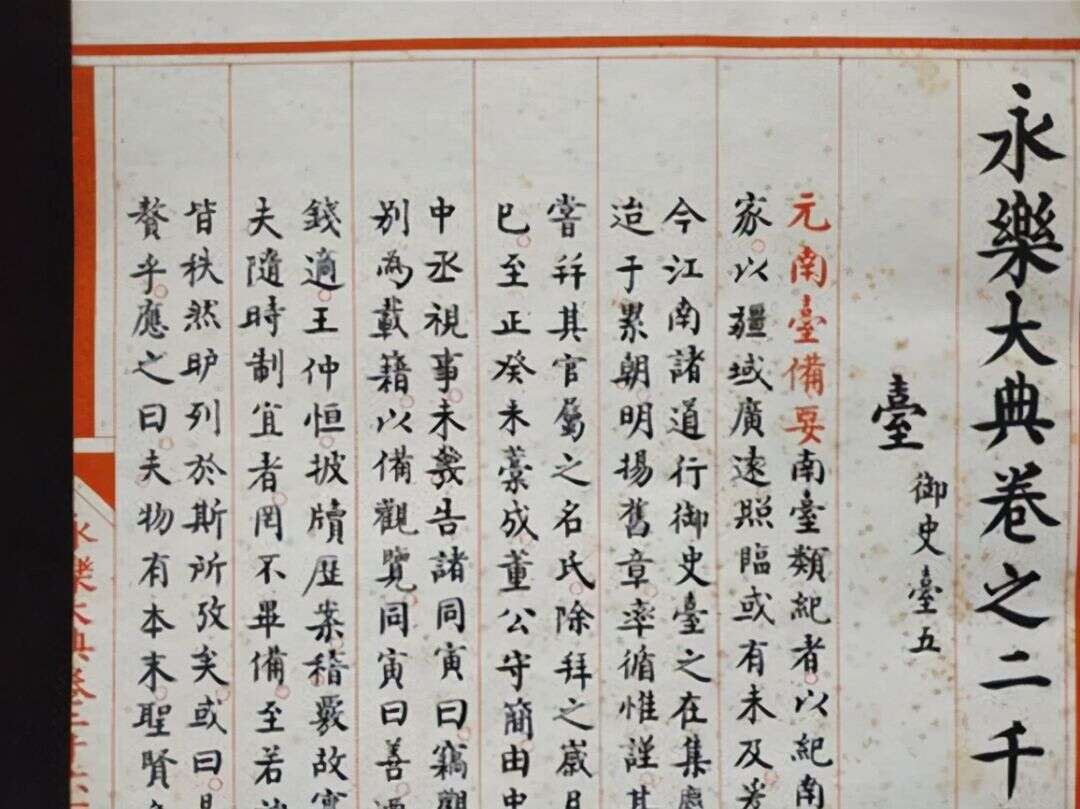 永樂大典卷之二千
臺
御史臺五
元南臺備要南臺類紀者以紀南
家以疆域廣遠照臨或有未及爰
今江南諸道行御史臺之在集慶
迨于累朝明揚舊章率循惟謹其
嘗幷其官屬之名氏除拜之歲月
巳至正癸未藁成董公守簡由中
中丞視事未幾告諸同寅曰竊觀
別為載籍以備觀覽同寅曰善
錢適王仲恒披牘歷案稽覈故實
夫隨時制宜者罔不畢備至若
皆秩然臚列於斯所攷矣或曰
贅乎應之曰夫物有本末聖賢
永樂大典卷二千六